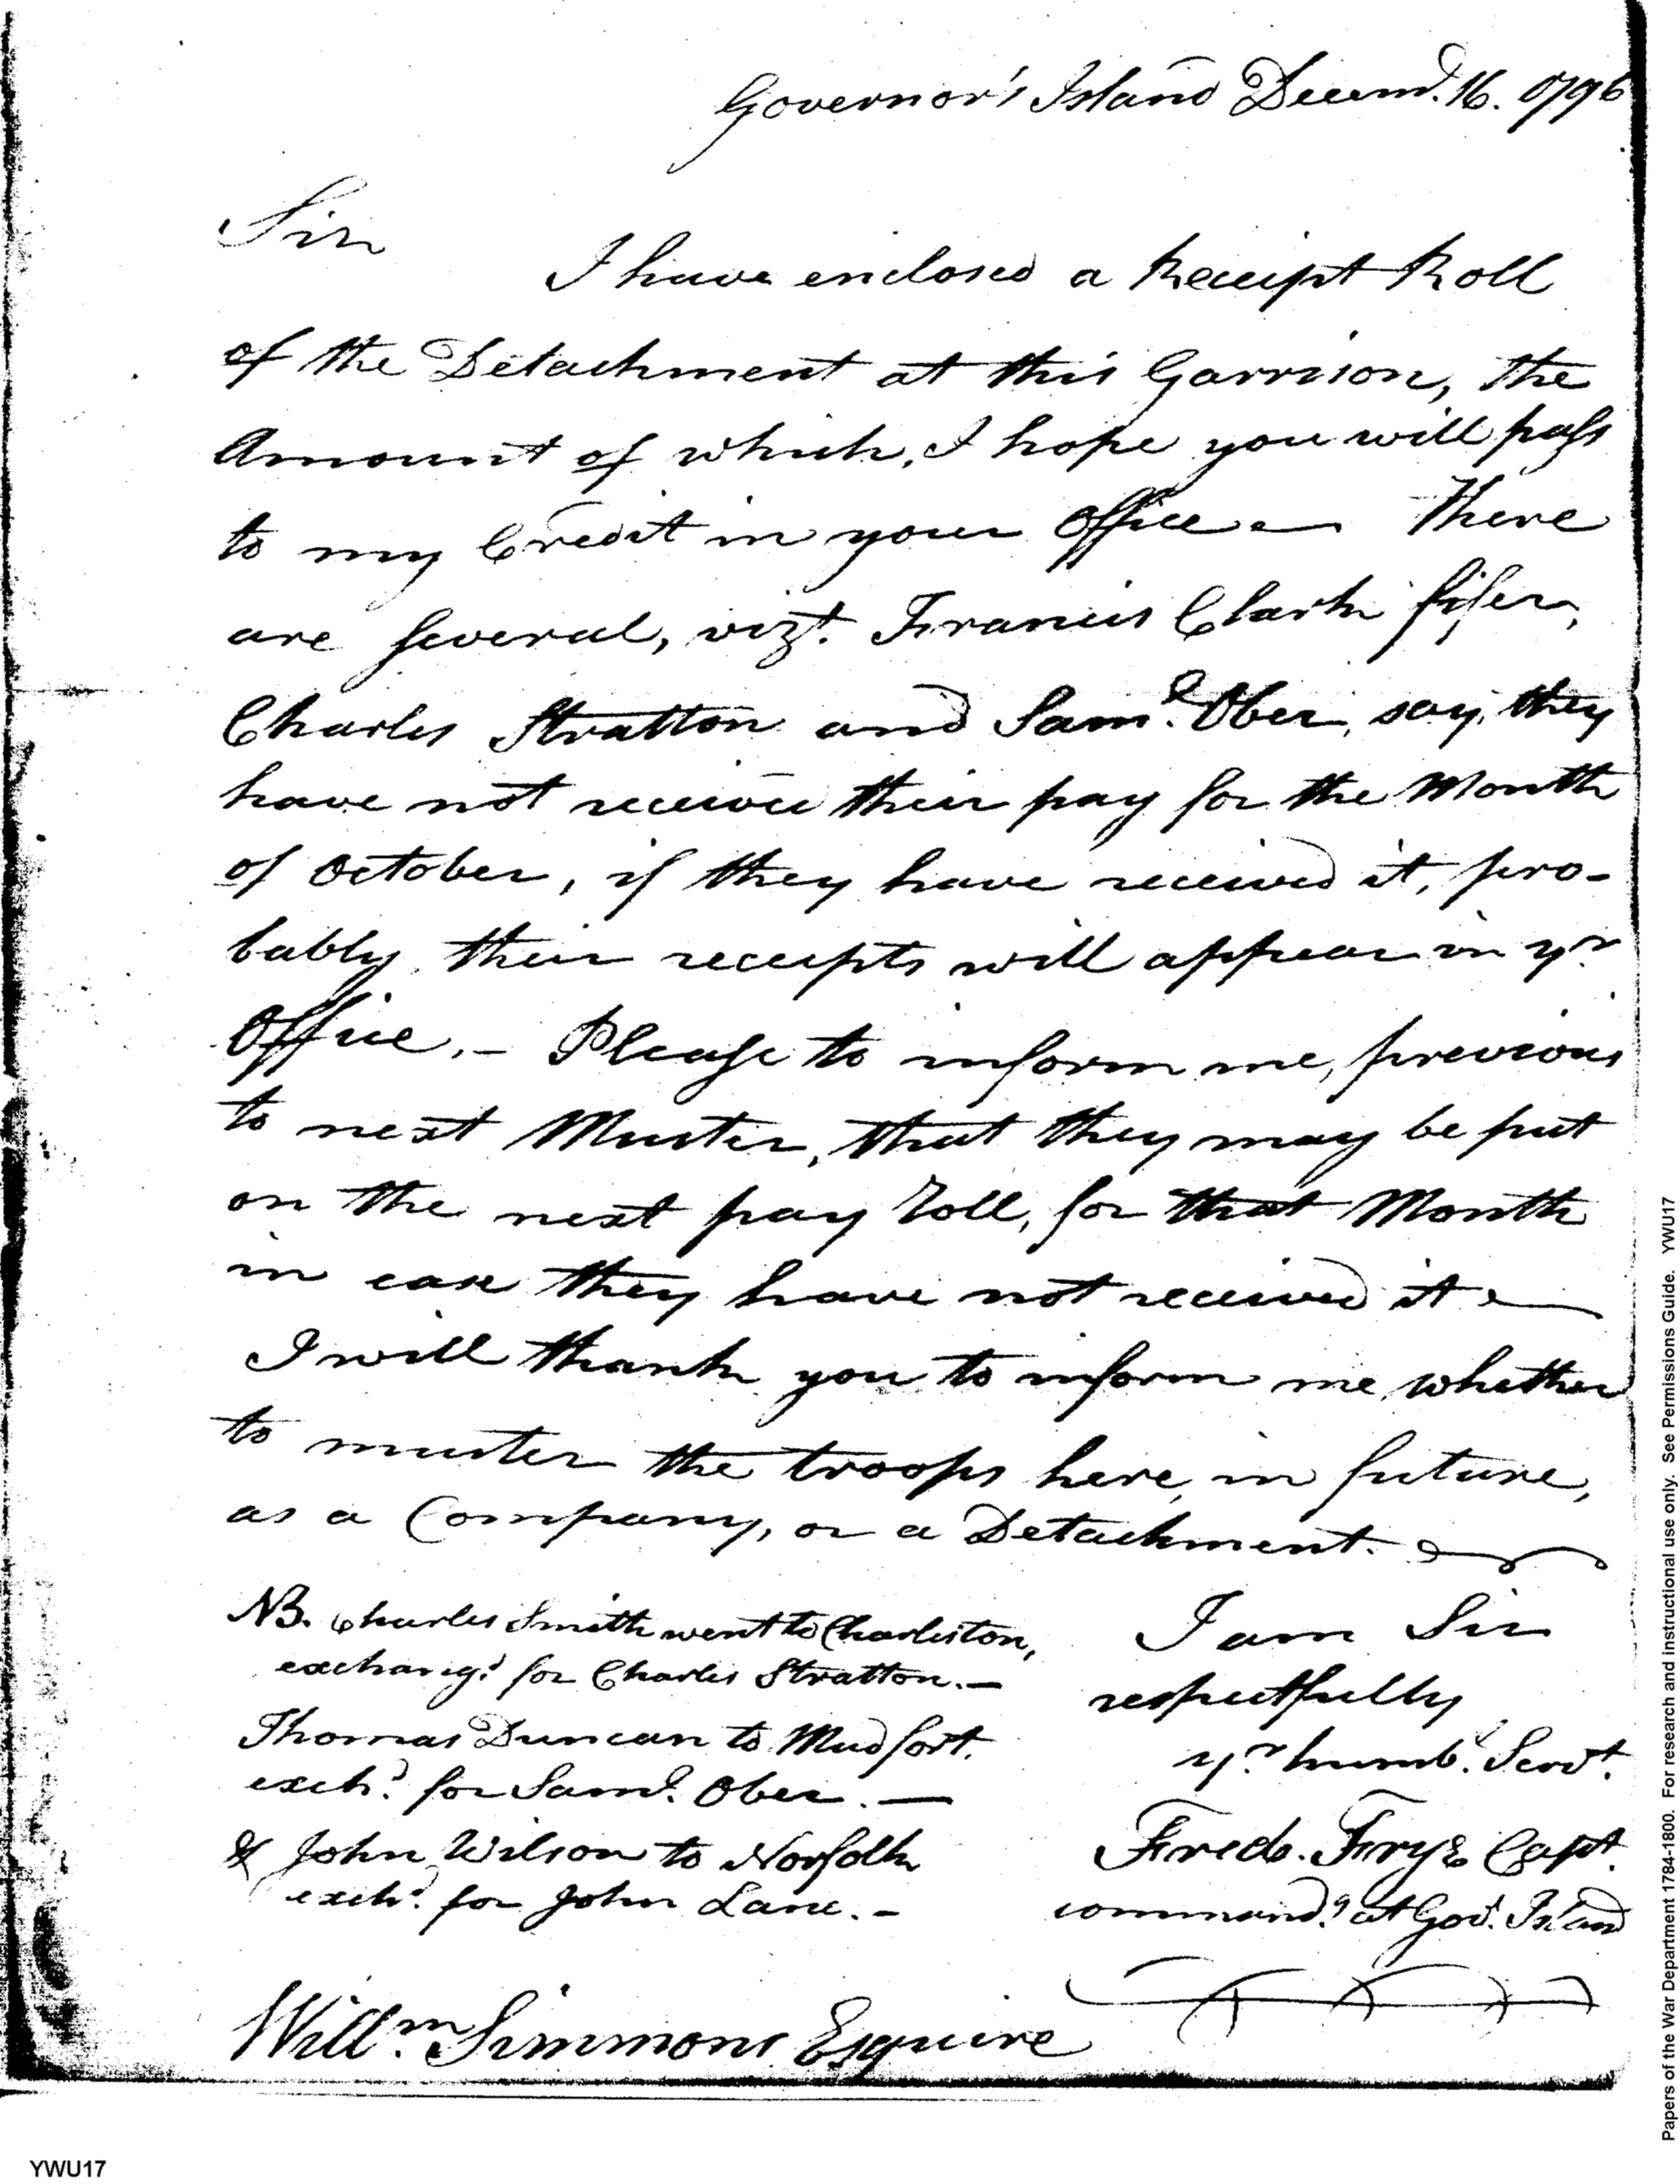 Governor's Island Decemr. 16. 1796
Sir
I have enclosed a Receipt Roll
of the Detachment at this Garrison, the
Amount of which, I hope you will pass
to my Credit in your Office — There
are several, vizt. Francis Clark fifer,
Charles Stratton and Saml. Ober, say, they
have not received their pay for the Month
of October, if they have received it, pro-
bably, their receipts will appear in yr
Office. – Please to inform me, previous
to next Muster, that they may be put
on the next pay Roll, for that Month
in case they have not received it —
I will thank you to inform me, whether
to muster the troops here, in future,
as a Company, or a Detachment.
NB. Charles Smith went to Charleston,
exchangd. for Charles Stratton. —
Thomas Duncan to Mud fort.
exchd. for Saml. Ober. —
& John Wilson to Norfolk
exchd. for John Lane. –
I am Sir
respectfully
yr. humbl. Servt.
Fredk. Frye Capt.
commandg. at Govr. Island
Willm. Simmons Esquire
YWU17
Papers of the War Department 1784-1800. For research and instructional use only. See Permissions Guide. YWU17